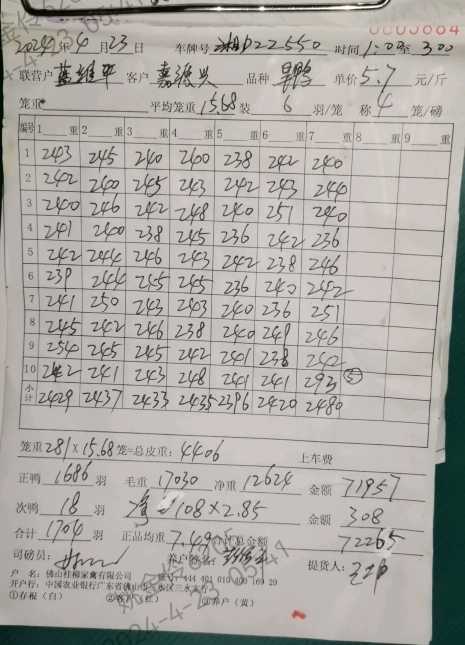 0003664
2024年4月23日 车牌号 湘D22550 时间1:00至3:00
联营户 客户 嘉源兴 品种 单价5.7元/斤
笼重 平均笼重15.68装6羽/笼 称4笼/磅
编号 1 重 2 重 3 重 4 重 5 重 6 重 7 重 8 重 9 重
1 243 245 240 240 238 242 240
2 242 240 245 243 242 243 244
3 240 246 242 248 240 251 240
4 241 240 238 245 236 242 236
5 242 244 246 243 242 238 246
6 239 244 245 245 236 240 242
7 241 250 243 243 240 236 251
8 245 242 246 238 240 249 246
9 254 245 245 242 241 238 242
10 242 241 243 248 241 241 293 ⑤
小计 2429 2437 2433 2435 2396 2420 2480
笼重281×15.68笼=总皮重:4406 上车费
正鸭1686羽 毛重17030 净重12624 金额71957
次鸭18羽 108×2.85 金额308
合计1704羽 正品均重7.49 合计总金额72265
司磅员: 养户名称: 提货人:
户 名:佛山桂柳家禽有限公司 账号:444 401 010 400 169 29
开户行:中国农业银行广东省佛山市三水区三水支行
①存根(白) ②客户(红) ③养户(黄)